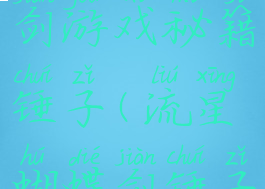 剑游戏秘籍
chuí zǐ liú xīng
锤子(流星
hú dié jiàn chuí zǐ
蝴蝶剑锤子